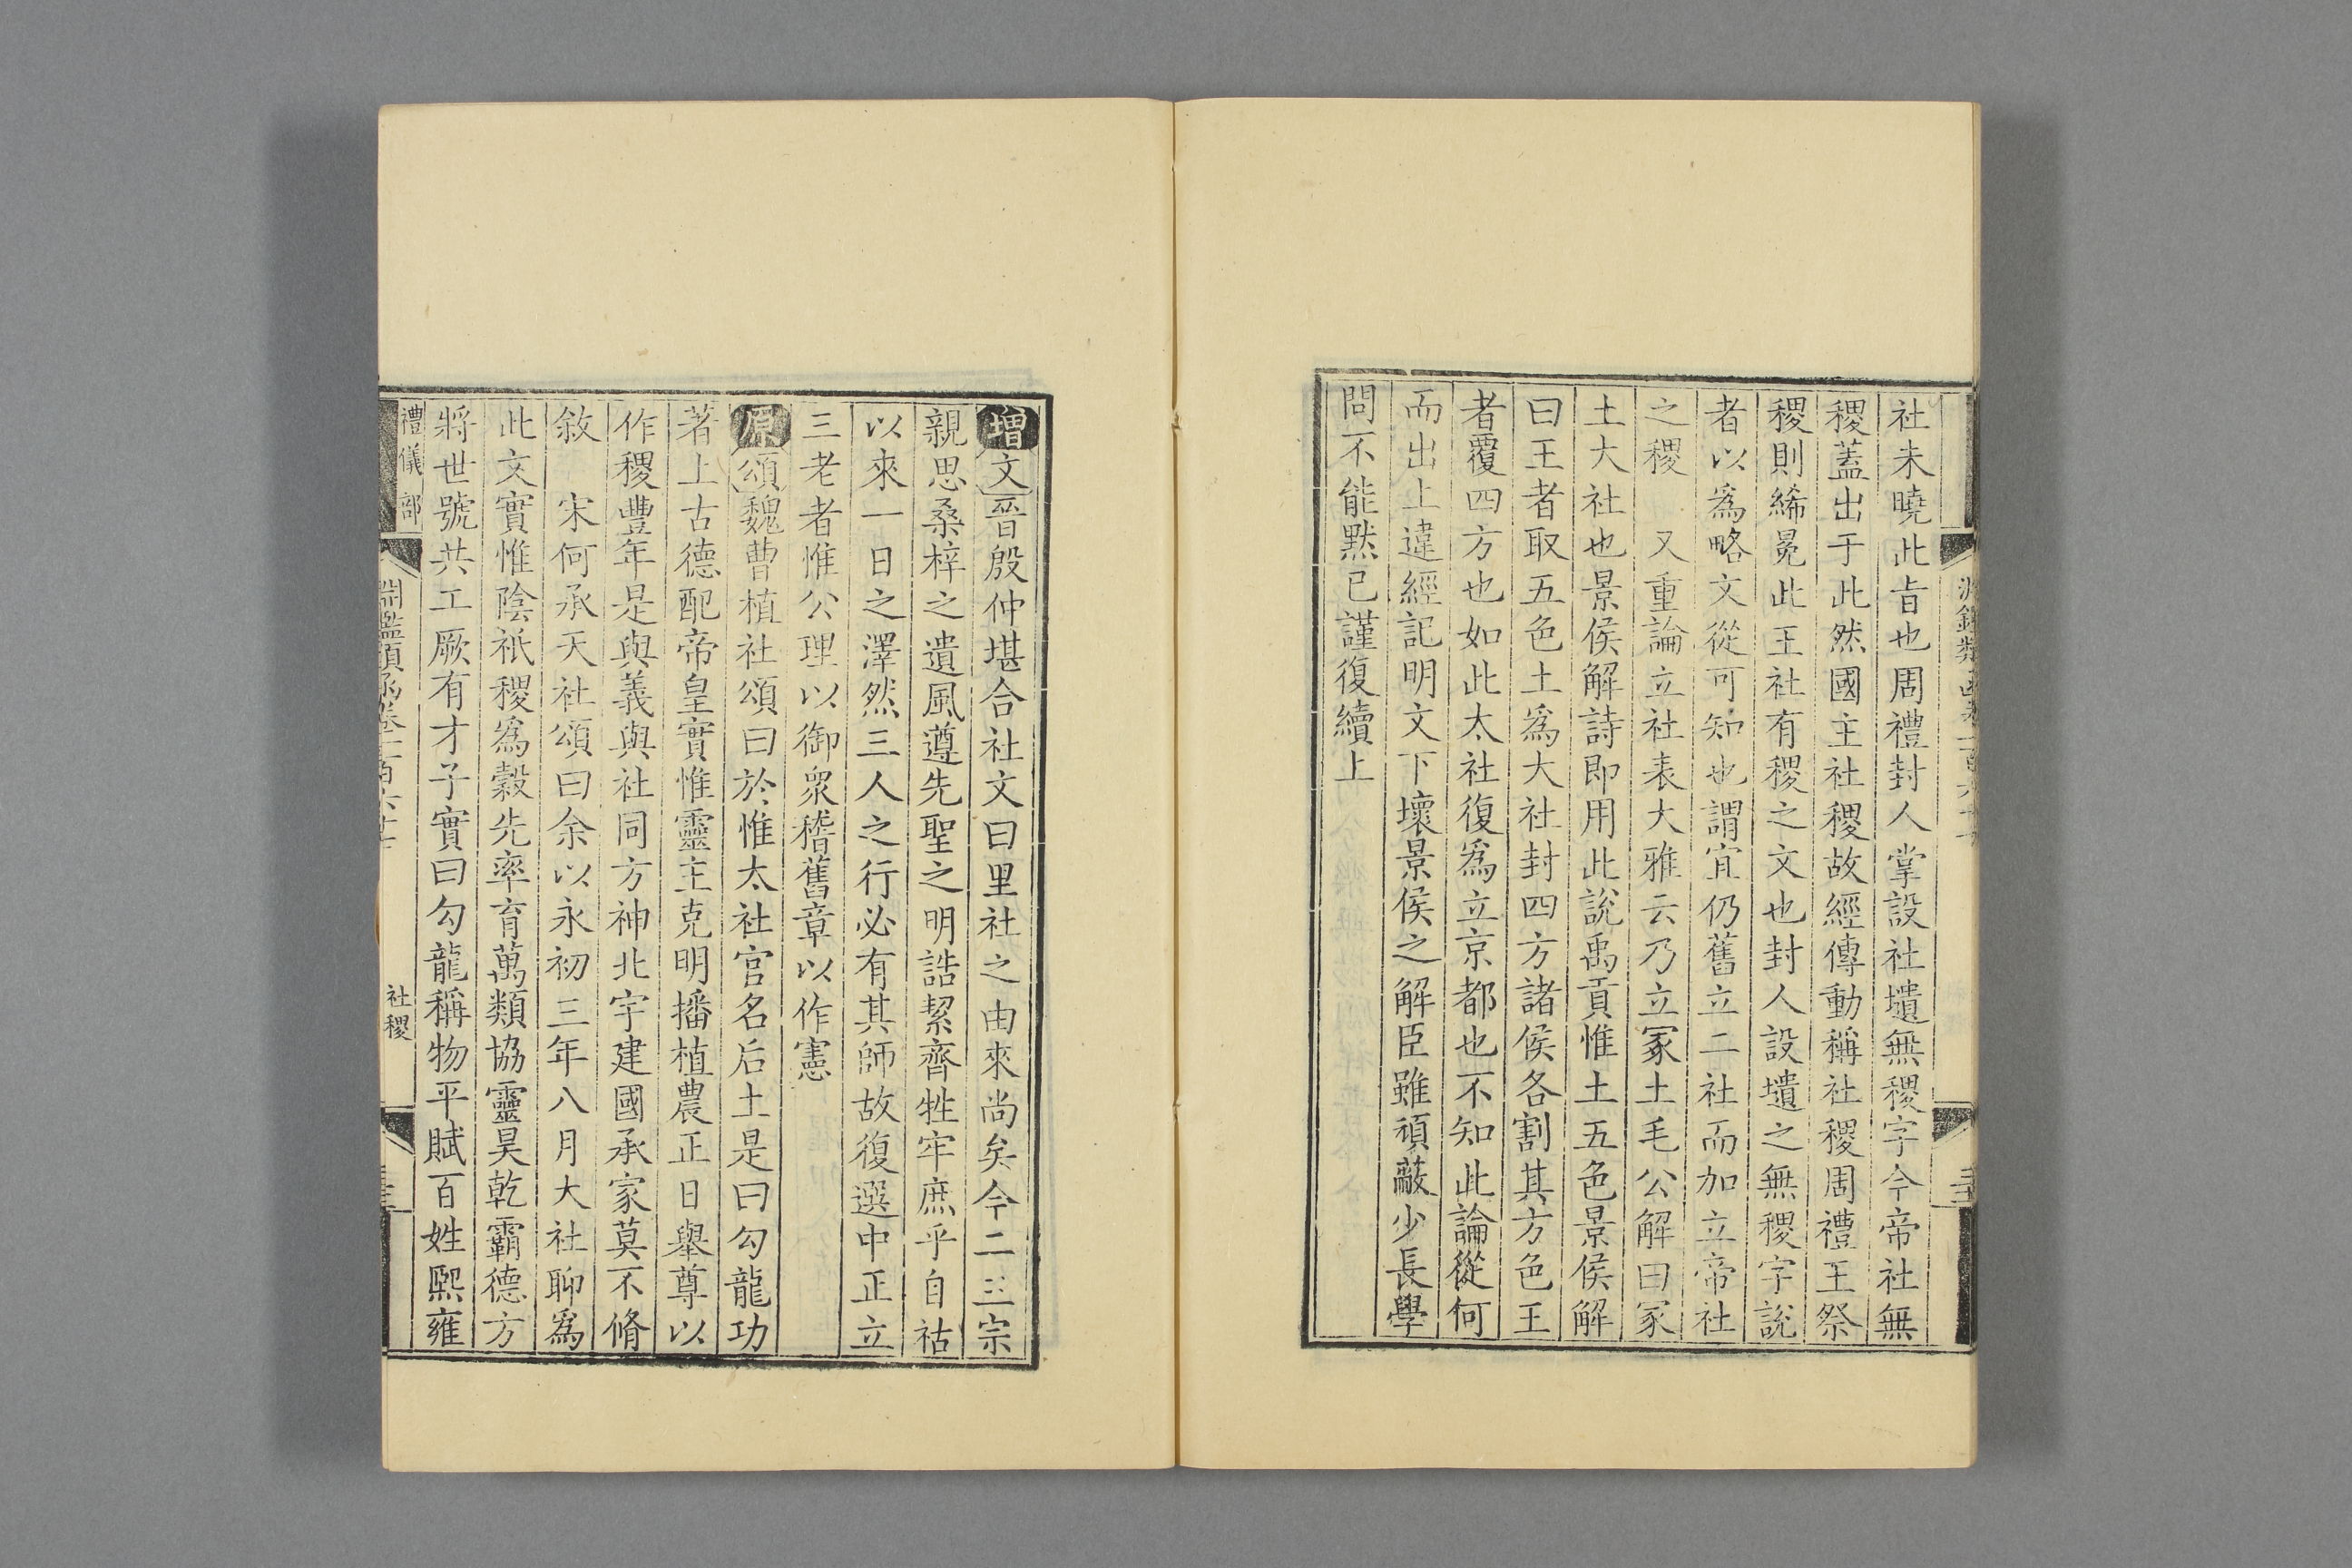 社未曉此旨也周禮封人掌設社壝無稷字今帝社無
稷蓋出于此然國主社稷故經傳動稱社稷周禮王祭
稷則絺冕此王社有稷之文也封人設壝之無稷字說
者以爲略文從可知也謂宜仍舊立二社而加立帝社
之稷　又重論立社表大雅云乃立冢土毛公解曰冢
土大社也景侯解詩即用此說禹貢惟土五色景侯解
曰王者取五色土爲大社封四方諸侯各割其方色王
者覆四方也如此太社復爲立京都也不知此論從何
而出上違經記明文下壞景侯之解臣雖頑蔽少長學
問不能默已謹復續上
增文晉殷仲堪合社文曰里社之由來尚矣今二三宗
親思桑梓之遺風遵先聖之明誥絜齊牲牢庶乎自祜
以來一日之澤然三人之行必有其師故復選中正立
三老者惟公理以御衆稽舊章以作憲
原頌魏曹植社頌曰於惟太社官名后土是曰勾龍功
著上古德配帝皇實惟靈主克明播植農正日舉尊以
作稷豐年是與義與社同方神北宇建國承家莫不脩
敘　宋何承天社頌曰余以永初三年八月大社聊爲
此文實惟陰祇稷爲穀先率育萬類協靈昊乾霸德方
將世號共工厥有才子實曰勾龍稱物平賦百姓熙雍
禮儀部
淵鑑類函卷一百六十
社稷